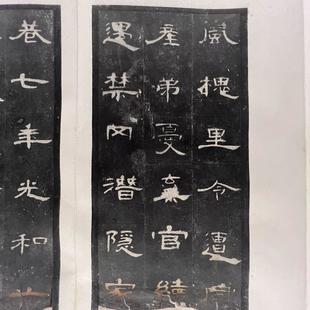 風槐里令遭同
產弟憂棄官續
遇禁网潛隱家
巷七年光和六